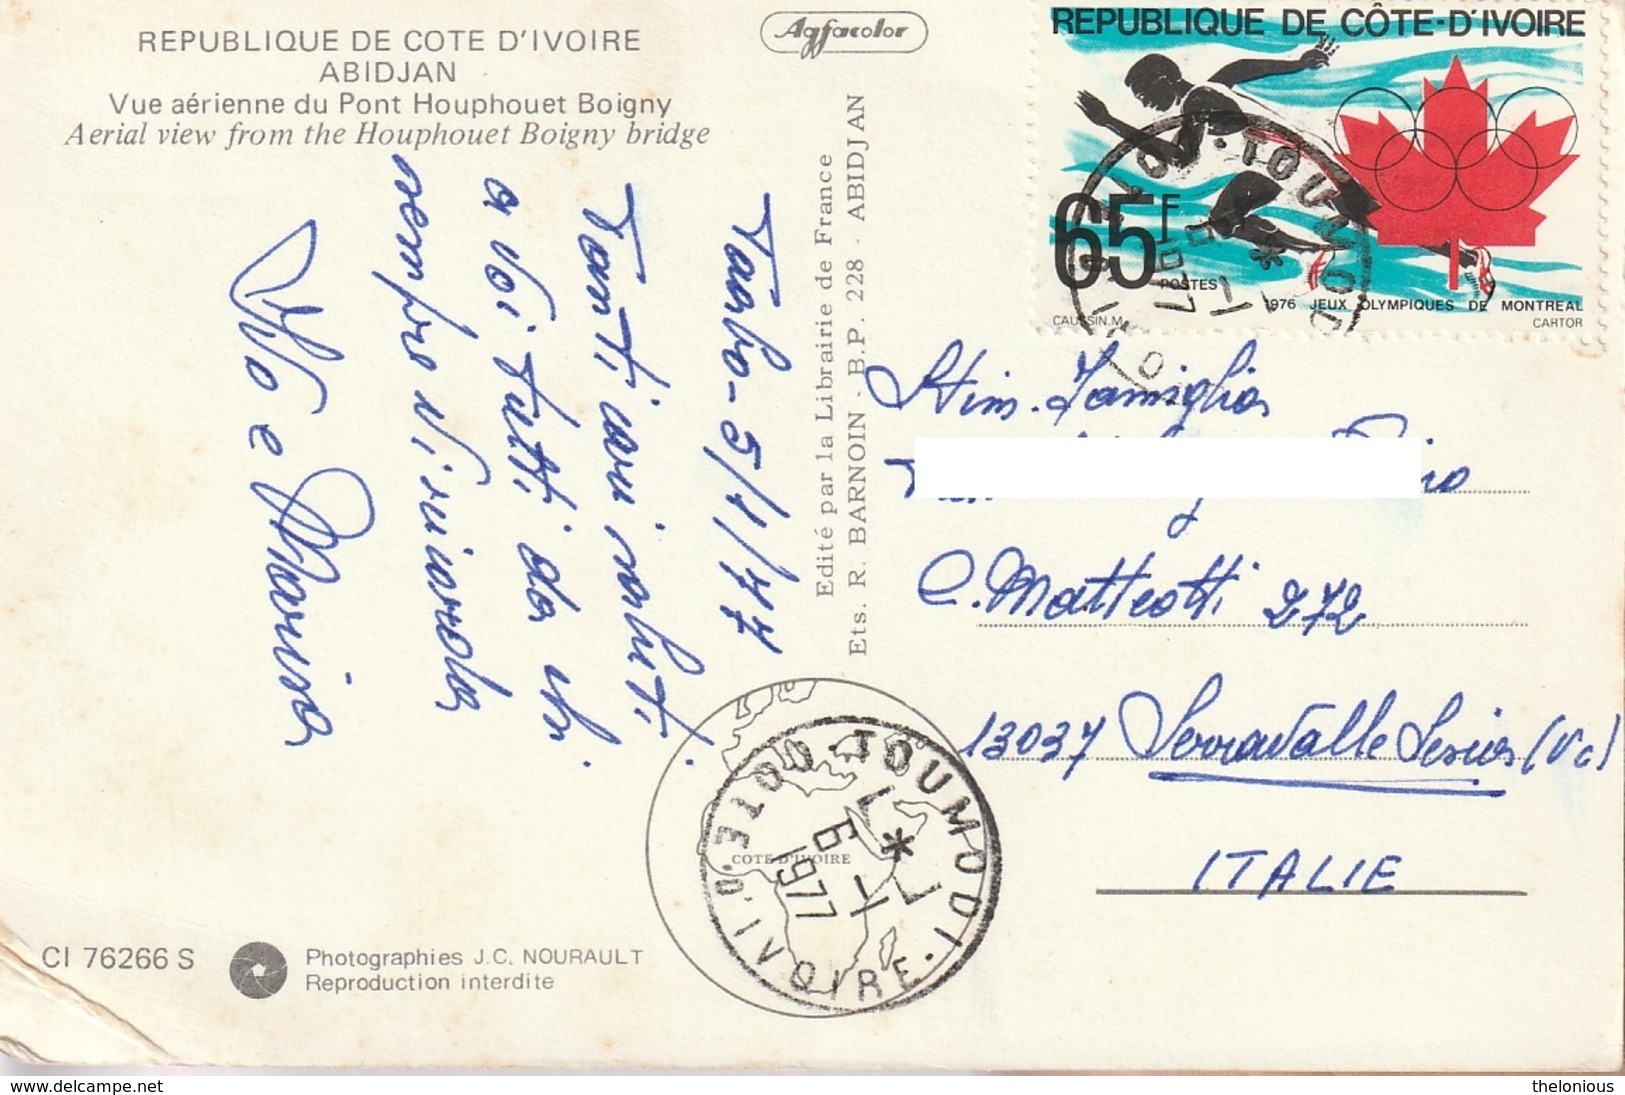 REPUBLIQUE DE COTE D'IVOIRE
ABIDJAN
Vue aérienne du Pont Houphouet Boigny
Aerial view from the Houphouet Boigny bridge
Agfacolor
REPUBLIQUE DE CÔTE-D'IVOIRE
65F
POSTES
1976 JEUX OLYMPIQUES DE MONTREAL
CAUSSIN.M.
CARTOR
Edité par la Librairie de France
Ets. R. BARNOIN - B.P. 228 - ABIDJAN
5/1/77
Tanti cari saluti
a voi tutti da chi
sempre vi ricorda
e Marisa
Famiglia
C. Matteotti 272
13037 Serravalle Sesia (Vc)
ITALIE
TOUMODI
COTE D'IVOIRE
6 -1
1977
COTE D'IVOIRE
CI 76266 S
Photographies J.C. NOURAULT
Reproduction interdite
www.delcampe.net
thelonious